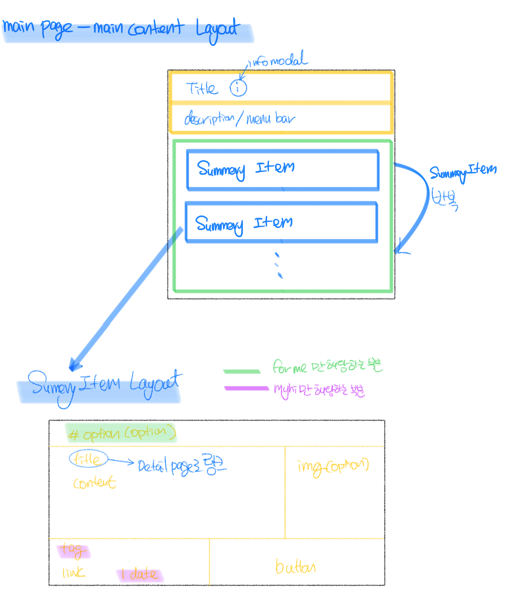 main page - main content Layout
info modal
Title i
description/menu bar
Summary Item
Summary Item
Summary Item
반복
Summary Item Layout
for me 만 해당하는 부분
Myhi만 해당하는 부분
# option (option)
title
Detail page로 링크
content
img(option)
tag
link
1 date
button